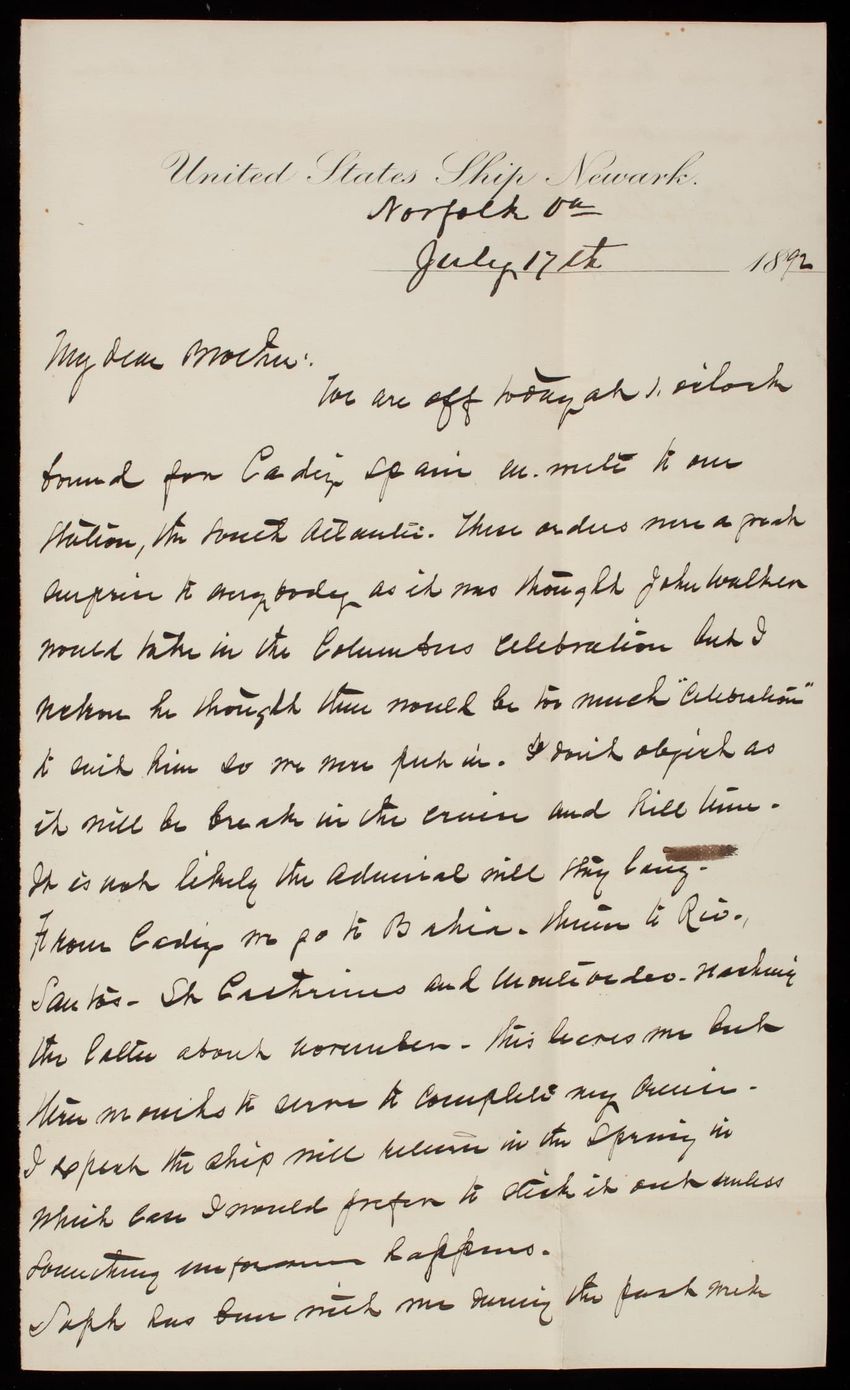 United States Ship Newark.
Norfolk Va
July 17th 1892
My dear Mother:
We are off today at 1. o'clock
bound for Cadiz Spain en. route to our
Station, the South Atlantic. These orders were a great
surprise to everybody as it was thought John Walker
would take in the Columbus celebration but I
reckon he thought there would be too much "celebration"
to suit him so we were put in. I don't object as
it will be break in the cruise and kill time.
It is not likely the Admiral will stay long.
From Cadiz we go to Bahia. thence to Rio.,
Santos- St Cathrines and Montevideo. reaching
the latter about November. this leaves me but
three months to serve to complete my cruise.
I expect the ship will return in the Spring in
which case I would prefer to stick it out unless
something unforseen happens.
Soph has been with me during the past week